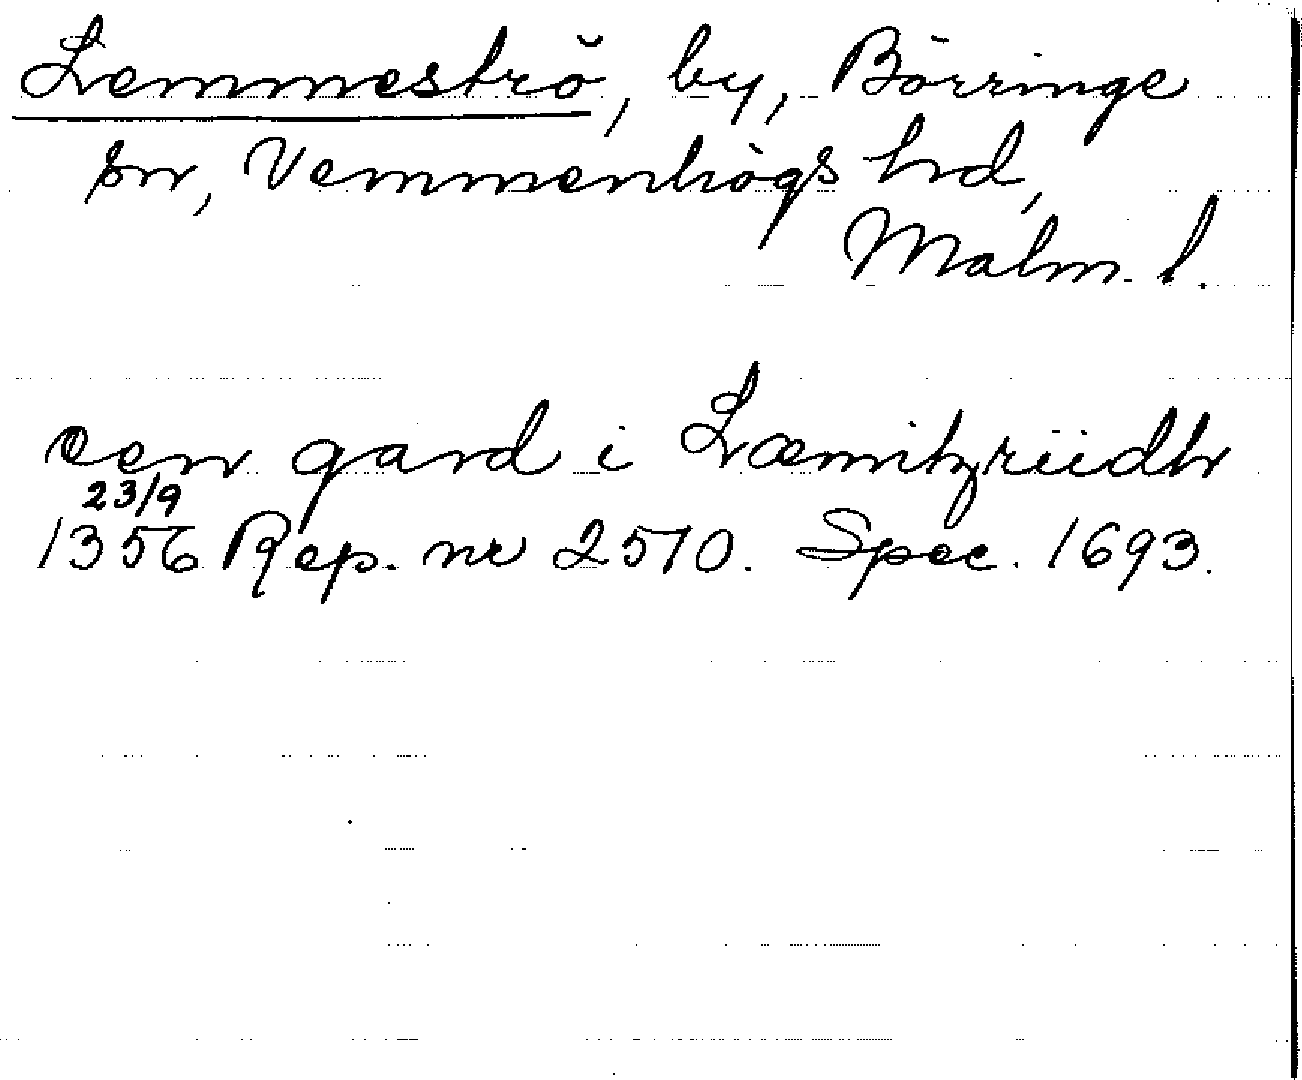 Lemmeströ, by, Börringe
sn, Vemmenhögs hd,
Malm. l.
een gard i Læmitzriidh
23/9
1356 Rep. nr 2570. Spec. 1693.